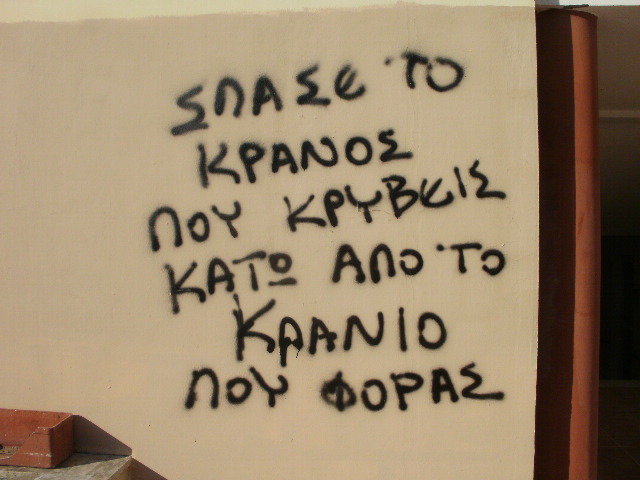 ΣΠΑΣΕ ΤΟ
ΚΡΑΝΟΣ
ΠΟΥ ΚΡΥΒΕΙΣ
ΚΑΤΩ ΑΠΟ ΤΟ
ΚΡΑΝΙΟ
ΠΟΥ ΦΟΡΑΣ